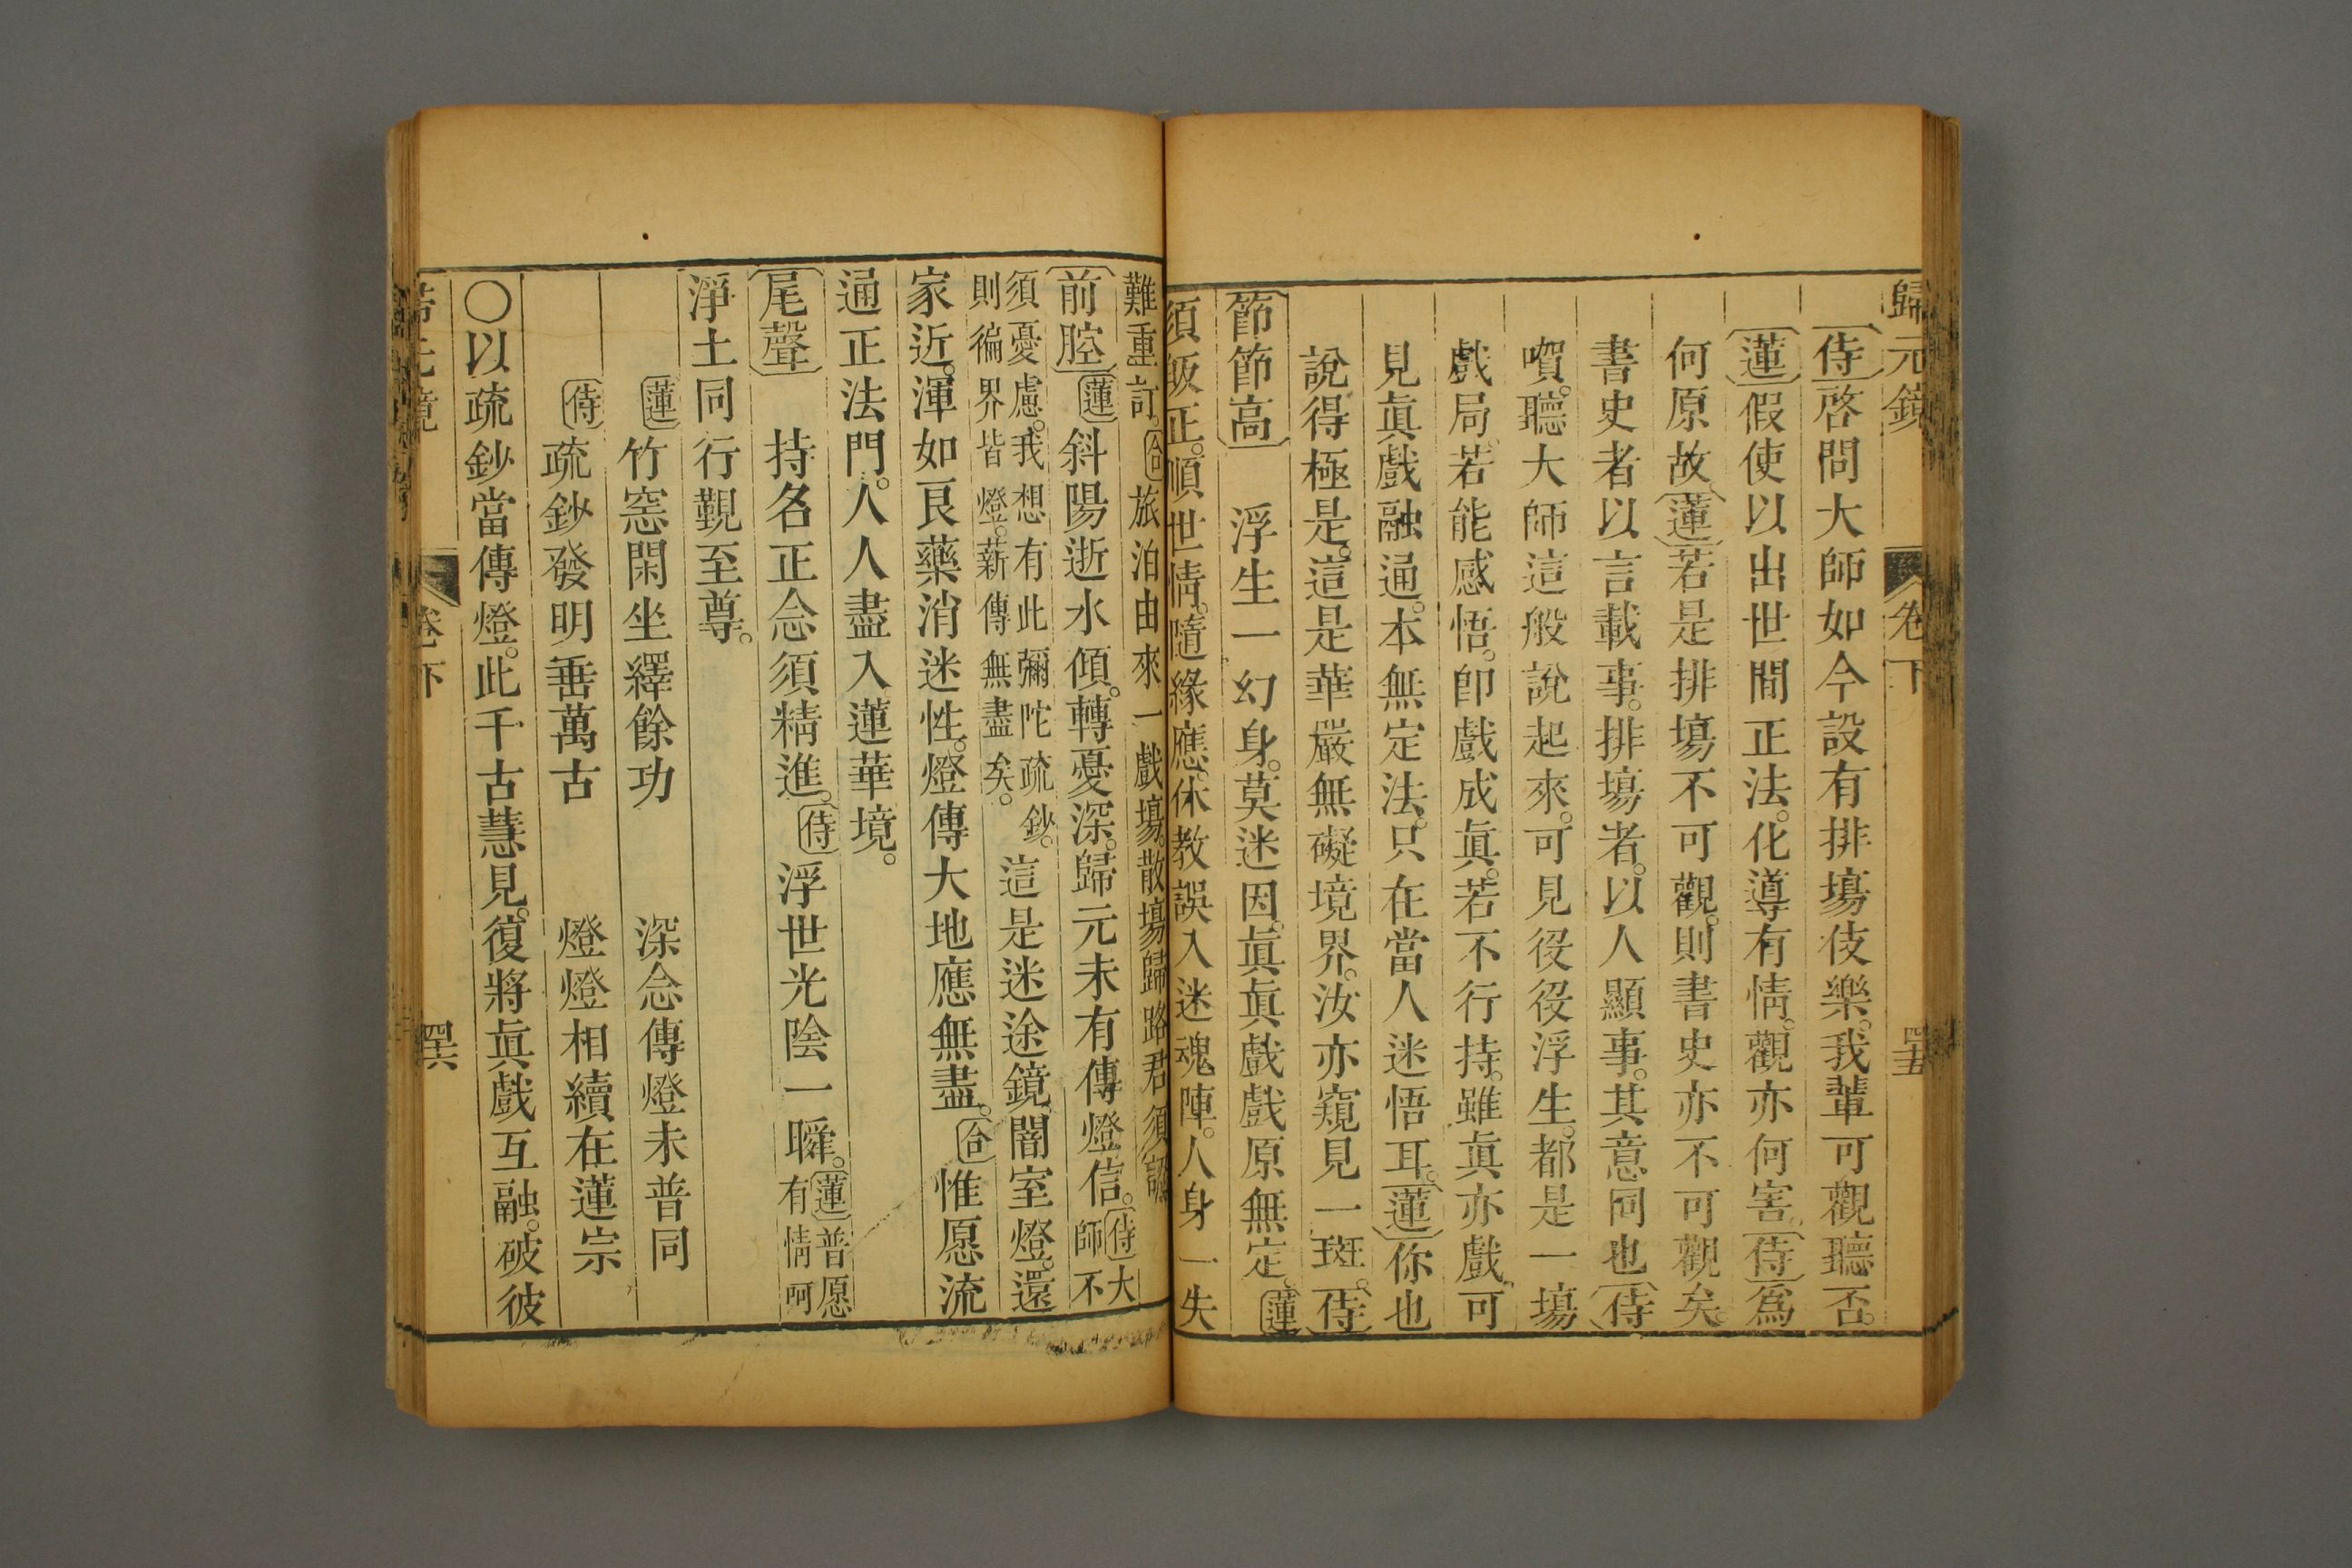 歸元鏡 卷下 四五
侍啓問大師如今設有排塲伎樂。我輩可觀聽否。
蓮假使以出世間正法。化導有情。觀亦何害。侍爲
何原故。蓮若是排塲不可觀。則書史亦不可觀矣。
書史者以言載事。排塲者。以人顯事。其意同也侍
嘪。聽大師這般說起來。可見役役浮生。都是一塲
戲局。若能感悟。卽戲成眞。若不行持。雖眞亦戲。可
見眞戲融通。本無定法。只在當人迷悟耳。蓮你也
說得極是。這是華嚴無礙境界。汝亦窺見一斑。侍
節節高 浮生一幻身。莫迷因。眞眞戲戲原無定。蓮
須皈正。順世情。隨緣應。休教誤入迷魂陣。人身一失
難重訂。合旅泊由來一戲塲。散塲歸路君須認
前腔蓮斜陽逝水傾。轉憂深。歸元未有傳燈信。侍大師不
須憂慮。我想有此彌陀疏鈔。則徧界皆燈。薪傳無盡矣。這是迷途鏡闇室燈。還
家近。渾如艮藥消迷性。燈傳大地應無盡。合惟愿流
通正法門。人人盡入蓮華境。
尾聲 持名正念須精進。侍浮世光陰一瞬。蓮普愿有情呵
淨土同行覲至尊。
蓮竹窓閑坐繹餘功 深念傳燈未普同
侍疏鈔發明垂萬古 燈燈相續在蓮宗
○以疏鈔當傳燈。此千古慧見。復將眞戲互融。破彼
卷下 四六